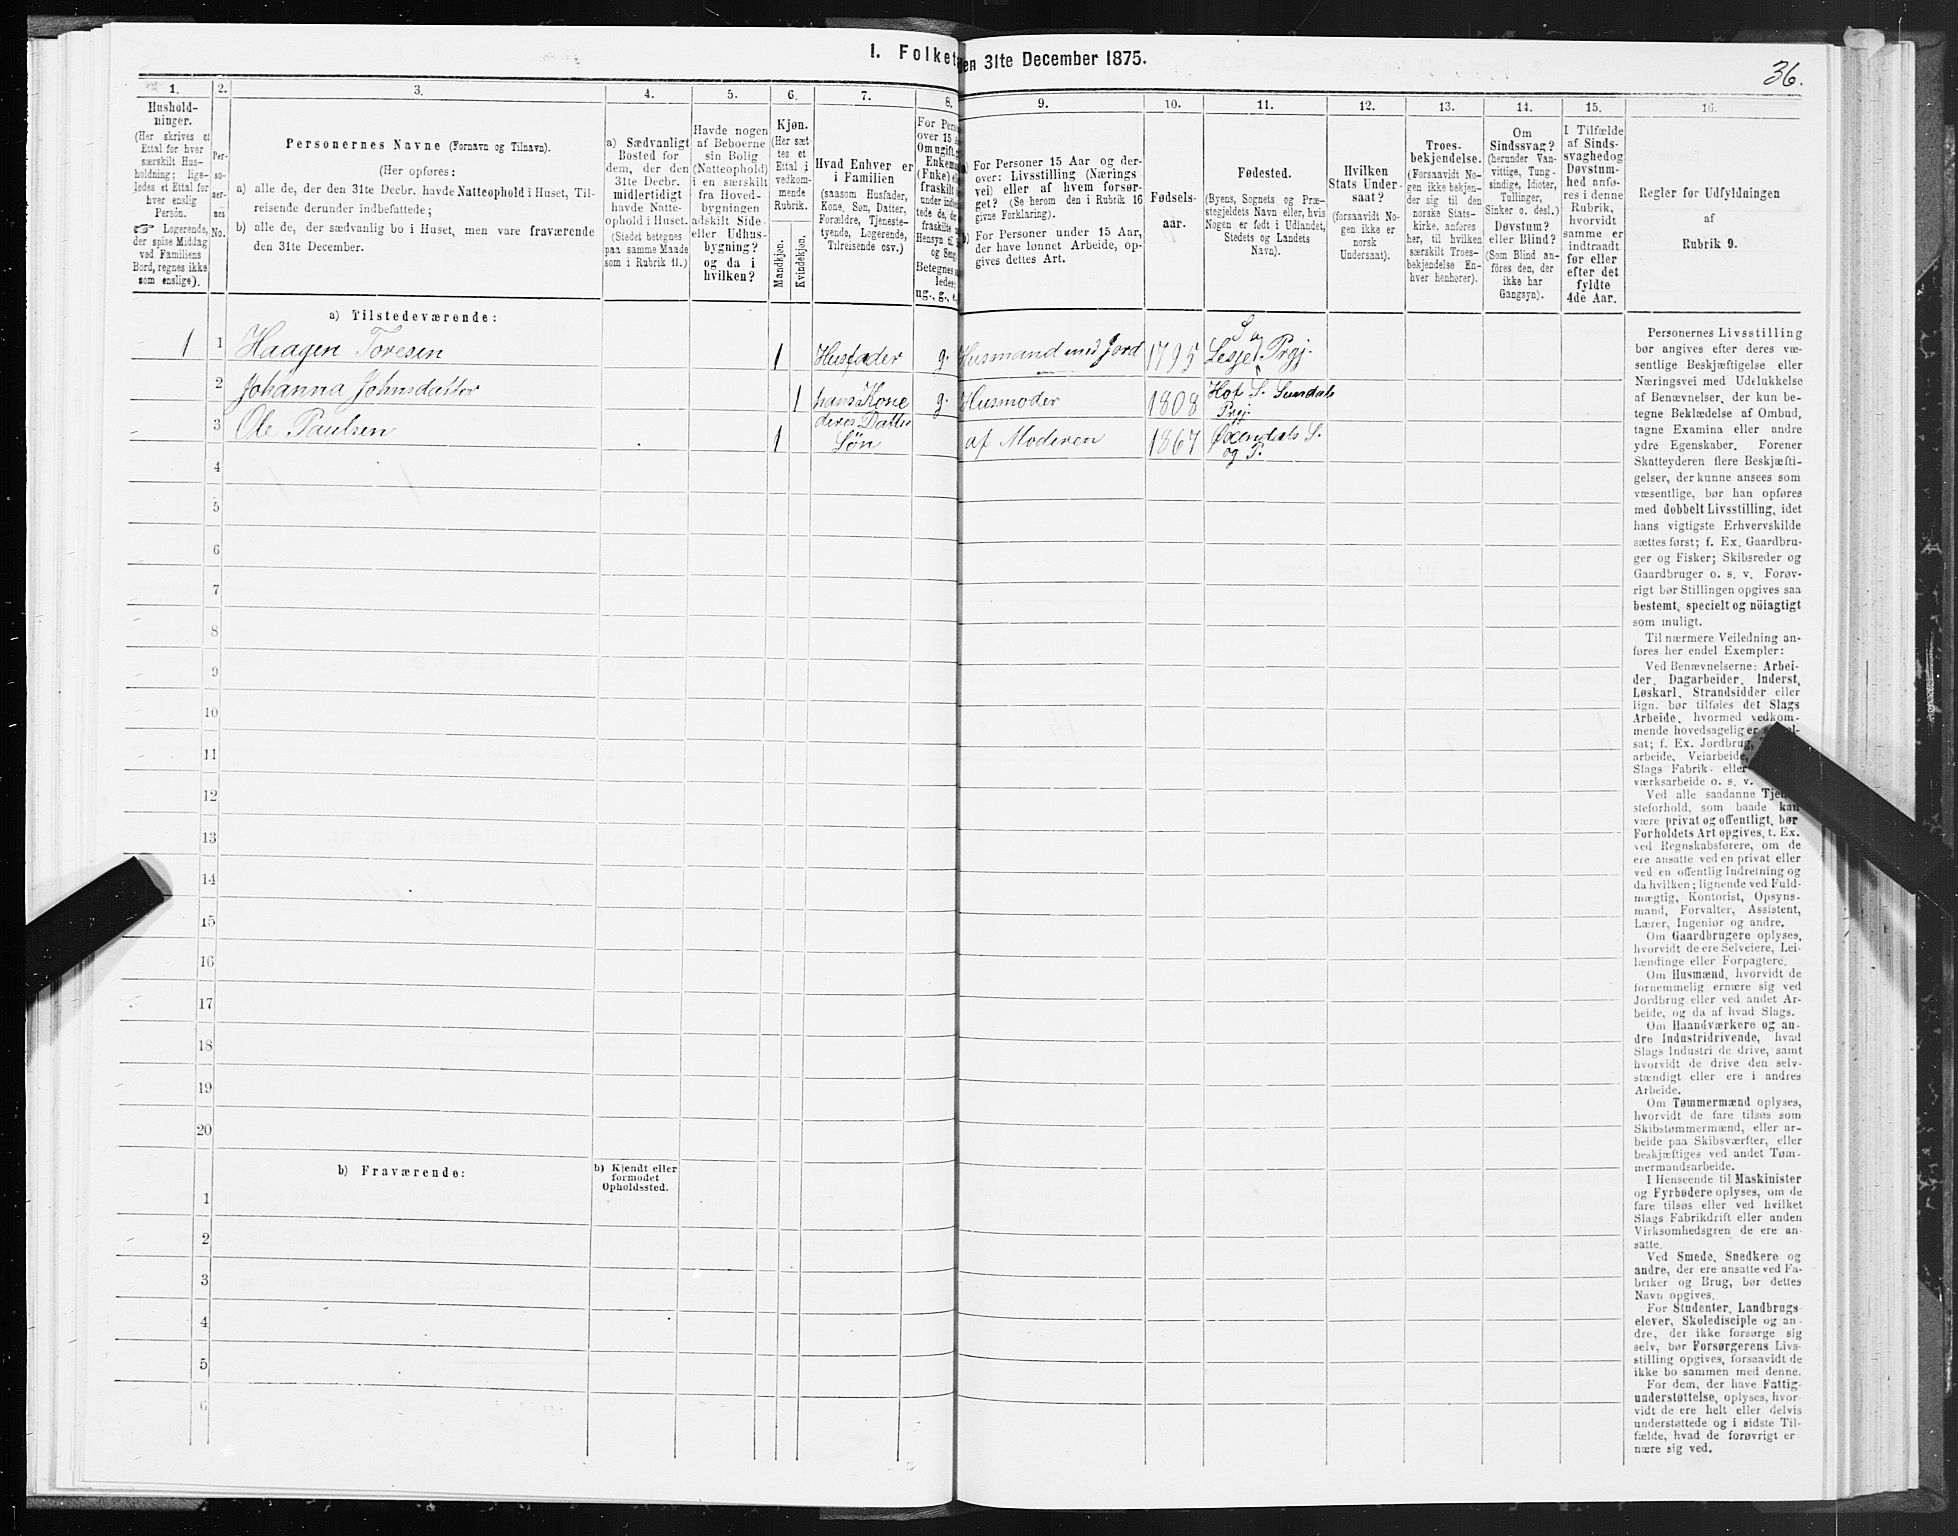 I. Folket
den 31te December 1875.
36.
1.
2.
3.
4.
5.
6.
7.
8.
9.
10.
11.
12.
13.
14.
15.
16.
Hushold-
ninger.
(Her skrives et
Ettal for hver
særskilt Hus-
holdning; lige-
ledes et Ettal for
hver enslig
Person.
☞ Logerende,
der spise Middag
ved Familiens
Bord, regnes ikke
som enslige).
Per-
so-
ner-
nes
No.
Personernes Navne (Fornavn og Tilnavn).
(Her opføres:
a) alle de, der den 31te Decbr. havde Natteophold i Huset, Til-
reisende derunder indbefattede;
b) alle de, der sædvanlig bo i Huset, men vare fraværende
den 31te December.
a) Sædvanligt
Bosted for
dem, der den
31te Decbr.
midlertidigt
havde Natte-
ophold i Huset.
(Stedet betegnes
paa samme Maade
som i Rubrik 11.)
Havde nogen
af Beboerne
sin Bolig
(Natteophold)
i en særskilt
fra Hoved-
bygningen
adskilt Side-
eller Udhus-
bygning?
og da i
hvilken?
Kjøn.
(Her sæt-
tes et
Ettal i
vedkom-
mende
Rubrik.
Mandkjøn.
Kvindekjøn.
Hvad Enhver er
i Familien
(saasom Husfader,
Kone, Søn, Datter,
Forældre, Tjeneste-
tyende, Logerende,
Tilreisende osv.)
For Pers
over 15 A
Om ugift, g
Enkem
(Enke) el
fraskilt
under indbe
tede de, de
fraskilte
Hensyn til
og Seng.
Betegnes s
ledes:
ug., g., e.,
a) For Personer 15 Aar og der-
over: Livsstilling (Nærings
vei) eller af hvem forsør-
get? (Se herom den i Rubrik 16
givne Forklaring).
b) For Personer under 15 Aar,
der have lønnet Arbeide, op-
gives dettes Art.
Fødsels-
aar.
Fødested.
(Byens, Sognets og Præ-
stegjeldets Navn eller, hvis
Nogen er født i Udlandet,
Stedets og Landets
Navn).
Hvilken
Stats Under-
saat?
(forsaavidt No-
gen ikke er
norsk
Undersaat).
Troes-
bekjendelse.
(Forsaavidt No-
gen ikke bekjen-
der sig til den
norske Stats-
kirke, anføres
her, til hvilken
særskilt Troes-
bekjendelse En-
hver henhører).
Om
Sindssvag?
(herunder Van-
vittige, Tung-
sindige, Idioter,
Tullinger,
Sinker o. desl.)
Døvstum?
eller Blind?
(Som Blind an-
føres den, der
ikke har
Gangsyn).
I Tilfælde
af Sinds-
svaghed og
Døvstum-
hed anfø-
res i denne
Rubrik,
hvorvidt
samme er
indtraadt
før eller
efter det
fyldte
4de Aar.
Regler for Udfyldningen
af
Rubrik 9.
a) Tilstedeværende:
1 1 Haagen Toresen 1 Husfader g. Husmand med Jord 1795 Lesje S og Prgj.
2 Johanna Johnsdatter 1 hans Kone g. Husmoder 1808 Hof S. Sundals
Prgj.
3 Ole Paulsen 1 deres Datter
Søn af Moderen 1867 Øxendals S.
og P.
4
5
6
7
8
9
10
11
12
13
14
15
16
17
18
19
20
b) Fraværende:
b) Kjendt eller
formodet
Opholdssted.
1
2
3
4
5
6
Personernes Livsstilling
bør angives efter deres væ-
sentlige Beskjæftigelse eller
Næringsvei med Udelukkelse
af Benævnelser, der kun be-
tegne Beklædelse af Ombud,
tagne Examina eller andre
ydre Egenskaber. Forener
Skatteyderen flere Beskjæfti-
gelser, der kunne ansees som
væsentlige, bør han opføres
med dobbelt Livsstilling, idet
hans vigtigste Erhvervskilde
sættes først; f. Ex. Gaardbru-
ger og Fisker; Skibsreder og
Gaardbruger o. s. v. Forøv-
rigt bør Stillingen opgives saa
bestemt, specielt og nöiagtigt
som muligt.
Til nærmere Veiledning an-
føres her endel Exempler:
Ved Benævnelserne: Arbei-
der, Dagarbeider, Inderst,
Løskarl, Strandsidder eller
lign. bør tilføies det Slags
Arbeide, hvormed vedkom-
mende hovedsagelig er
sat; f. Ex. Jordbrug,
arbeide, Veiarbeide,
Slags Fabrik- eller
værksarbeide o. s. v.
Ved alle saadanne Tjene-
steforhold, som baade kan
være privat og offentligt, bør
Forholdets Art opgives, t. Ex.
ved Regnskabsførere, om de
ere ansatte ved en privat eller
ved en offentlig Indretning og
da hvilken; lignende ved Fuld-
mægtig, Kontorist, Opsyns-
mand, Forvalter, Assistent,
Lærer, Ingeniør og andre.
Om Gaardbrugere oplyses,
hvorvidt de ere Selveiere, Lei-
lændinge eller Forpagtere.
Om Husmænd, hvorvidt de
fornemmelig ernære sig ved
Jordbrug eller ved andet Ar-
beide, og da af hvad Slags.
Om Haandværkere og an-
dre Industridrivende, hvad
Slags Industri de drive, samt
hvorvidt de drive den selv-
stændigt eller ere i andres
Arbeide.
Om Tømmermænd oplyses,
hvorvidt de fare tilsøs som
Skibstømmermænd, eller ar-
beide paa Skibsværfter, eller
beskjæftiges ved andet Tøm-
mermandsarbeide.
I Henseende til Maskinister
og Fyrbødere oplyses, om de
fare tilsøs eller ved hvilket
Slags Fabrikdrift eller anden
Virksomhedsgren de ere an-
satte.
Ved Smede, Snedkere og
andre, der ere ansatte ved Fa-
briker og Brug, bør dettes
Navn opgives.
For Studenter, Landbrugs-
elever, Skoledisciple og an-
dre, der ikke forsørge sig
selv, bør Forsørgerens Livs-
stilling opgives, forsaavidt de
ikke bo sammen med denne.
For dem, der have Fattig-
understøttelse, oplyses, hvor-
vidt de ere helt eller delvis
understøttede og i sidste Til-
fælde, hvad de forøvrigt er-
nære sig ved.